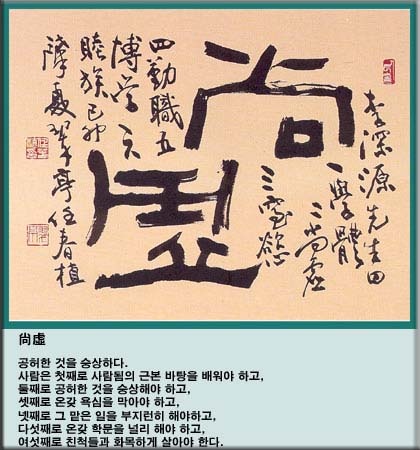 李深源先生曰
一學體
二尚虛
三窒慾
尚虛
四勤職五
博學六
睦族己卯
夏翠亭任春植
尙虛
공허한 것을 숭상하다.
사람은 첫째로 사람됨의 근본 바탕을 배워야 하고,
둘째로 공허한 것을 숭상해야 하고,
셋째로 온갖 욕심을 막아야 하고,
넷째로 그 맡은 일을 부지런히 해야하고,
다섯째로 온갖 학문을 널리 해야 하고,
여섯째로 친척들과 화목하게 살아야 한다.